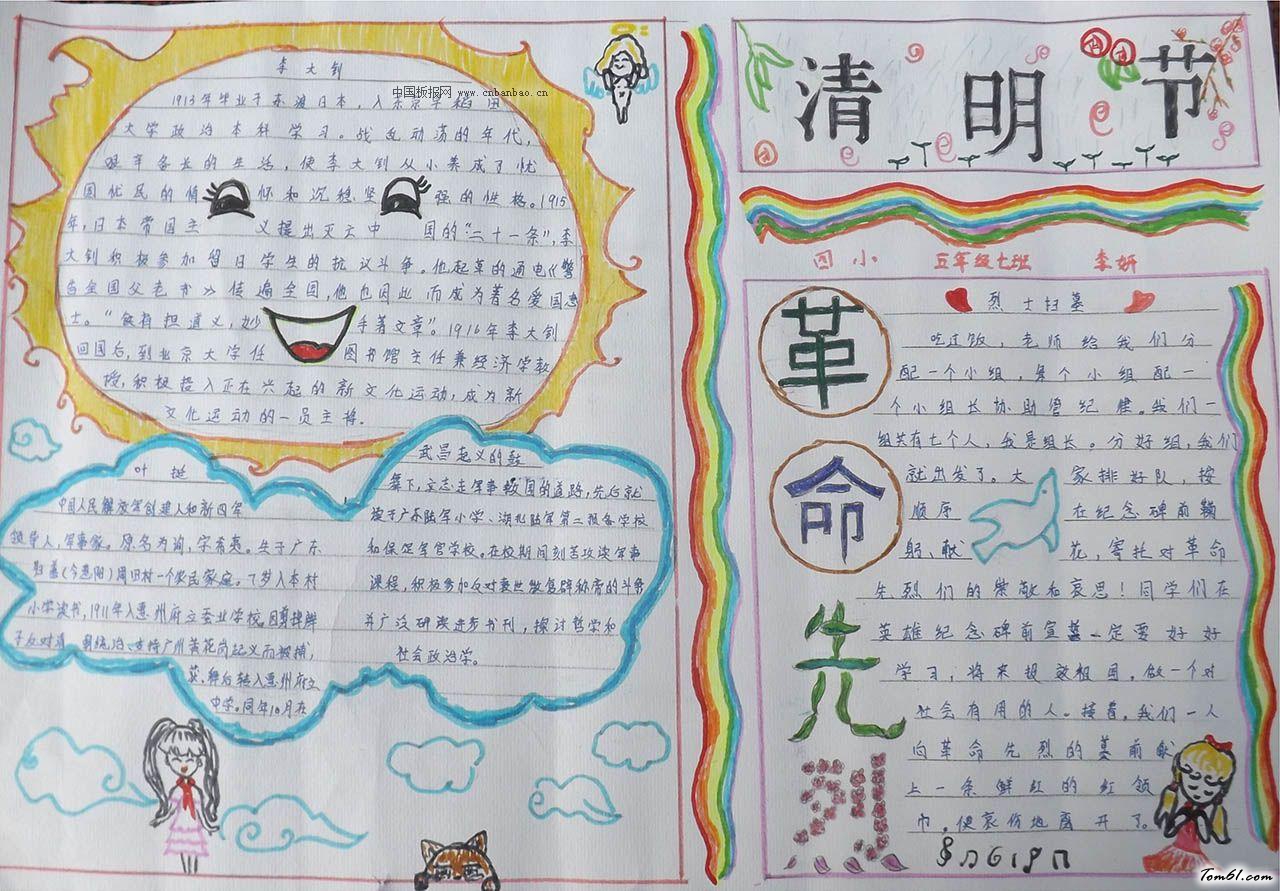 李大钊
中国板报网
www.cnbanbao.cn
1913年毕业于东渡日本，入东京早稻田
大学政治本科学习。战乱动荡的年代，
艰辛备长的生活，使李大钊从小养成了忧
国忧民的情怀和沉稳坚强的性格。1915
年，日本帝国主义提出灭亡中国的“二十一条”，李
大钊积极参加留日学生的抗议斗争。他起草的通电《警
告全国父老书》传遍全国，他也因此而成为著名爱国志
士。“铁肩担道义，妙手著文章”。1916年李大钊
回国后，到北京大学任图书馆主任兼经济学教
授，积极投入正在兴起的新文化运动，成为新
文化运动的一员主将.
叶挺
中国人民解放军创建人和新四军
领导人，军事家。原名为询，字希夷。生于广东
归善(今惠阳)周田村一个农民家庭。7岁入本村
小学读书，1911年入惠州府立蚕业学校，因剪掉辫
子反对清 朝统治、支持广州黄花岗起义而被捕，
获 释后转入惠州府立
中学。同年10月在
武昌起义的鼓
舞下，立志走军事救国的道路，先后就
读于广东陆军小学、湖北陆军第二预备学校
和保定军官学校。在校期间刻苦攻读军事
课程，积极参加反对袁世凯复辟称帝的斗争
并广泛研读进步书刊，探讨哲学和
社会政治学。
清明节
四小 五年级七班 李妍
革命先烈
烈士扫墓
吃过饭，老师给我们分
配一个小组，每个小组配一
个小组长协助管纪律。我们一
组共有七个人，我是组长。分好组，我们
就出发了。大家排好队，按
顺序在纪念碑前鞠
躬、献花，寄托对革命
先烈们的崇敬和哀思！同学们在
英雄纪念碑前宣誓一定要好好
学习，将来报效祖国，做一个对
社会有用的人。接着，我们一人
向革命先烈的墓前献
上一条鲜红的红领
巾。便哀伤地离开了。
Tom61.com